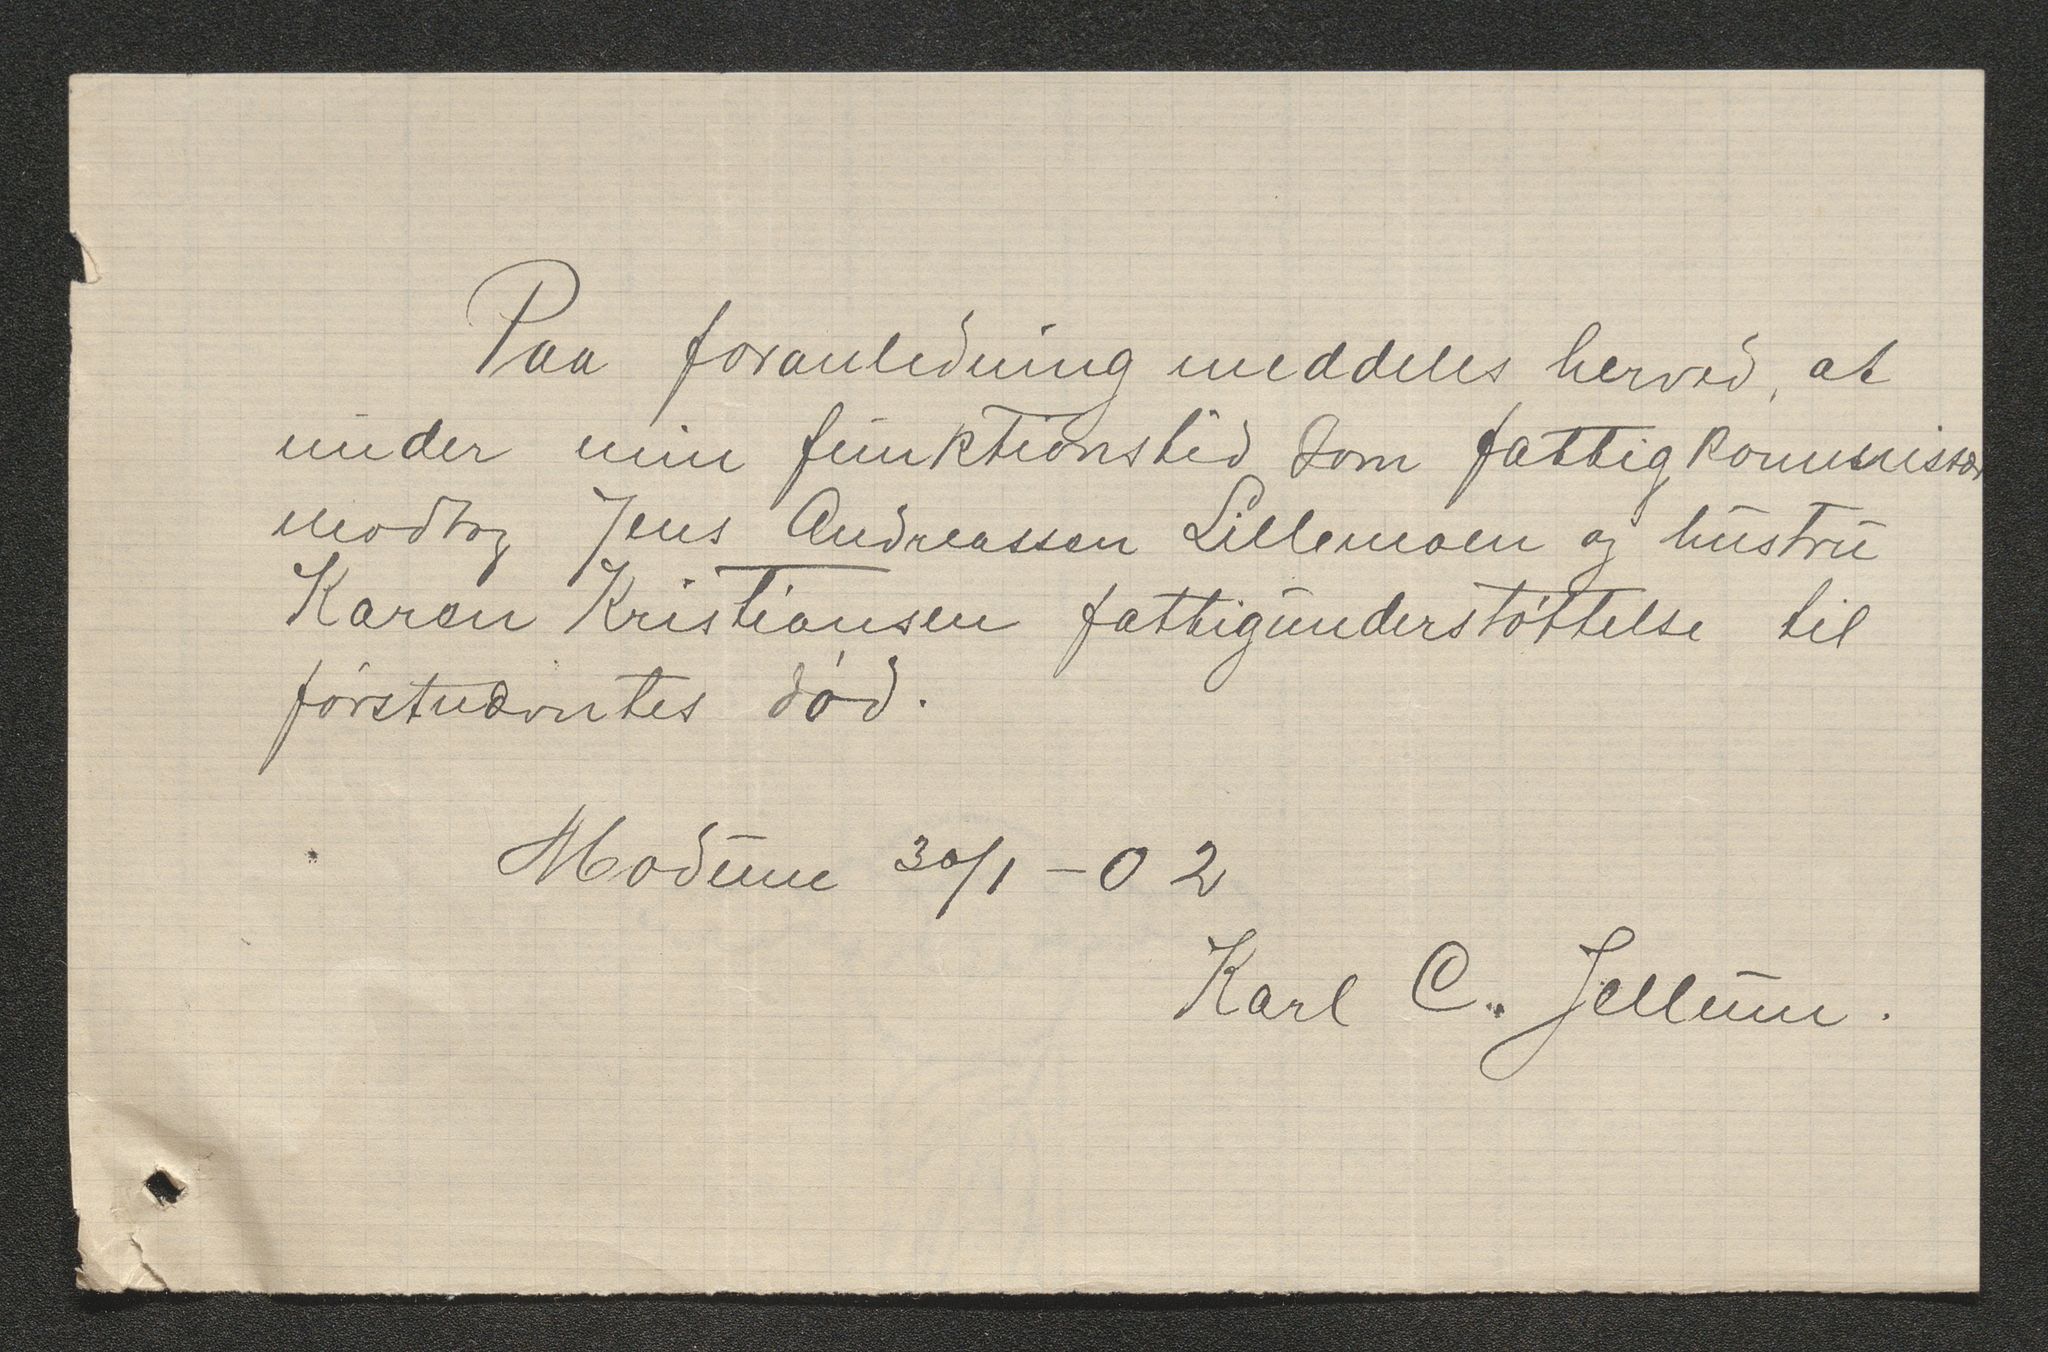 Paa foranledning meddeles herved, at
under min funktionstid som fattigkommissær
modtog Jens Andreassen Lillemoen og hustru
Karen Kristiansen fattigunderstøttelse til
førstnævntes død.
Modum 30/1 - 02
Karl C. Jellum.